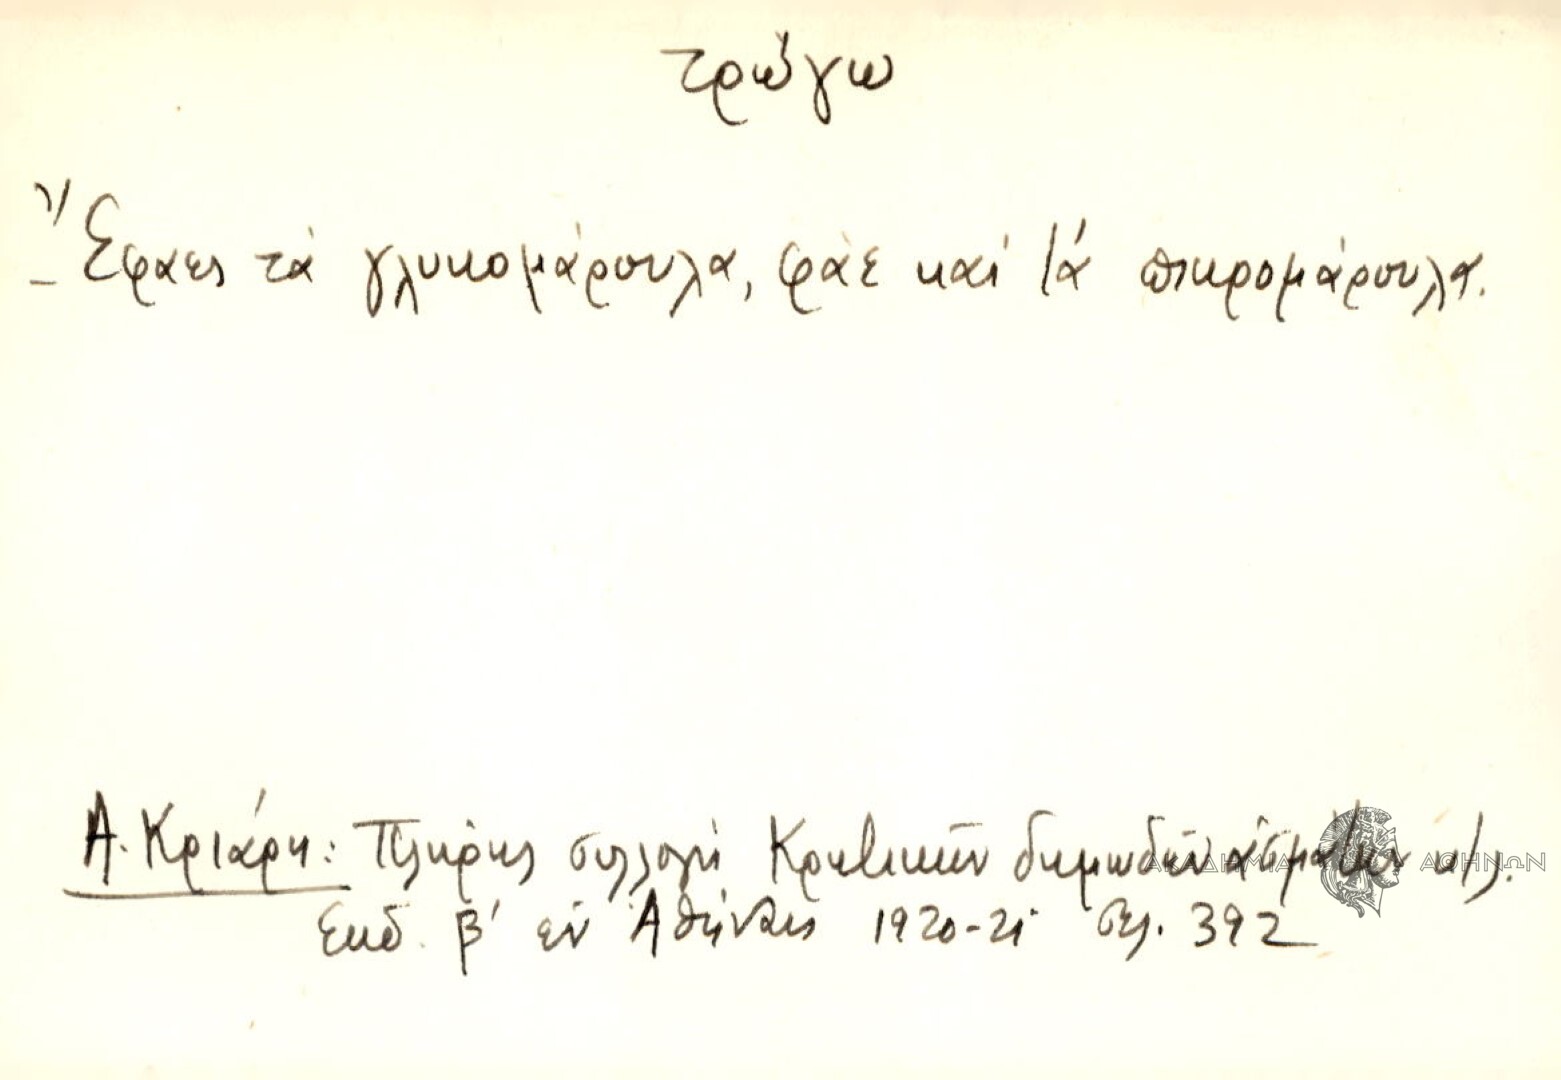 τρώγω
Ἔφαες τὰ γλυκομάρουλα, φάε καὶ τὰ πικρομάρουλα.
Α. Κριάρη: Πλήρης συλλογὴ Κρητικῶν δημωδῶν ἀσμάτων κτλ.
Ἐκδ. β' ἐν Ἀθήναις 1920-21 σελ. 392
ΑΚΑΔΗΜΙΑ ΑΘΗΝΩΝ